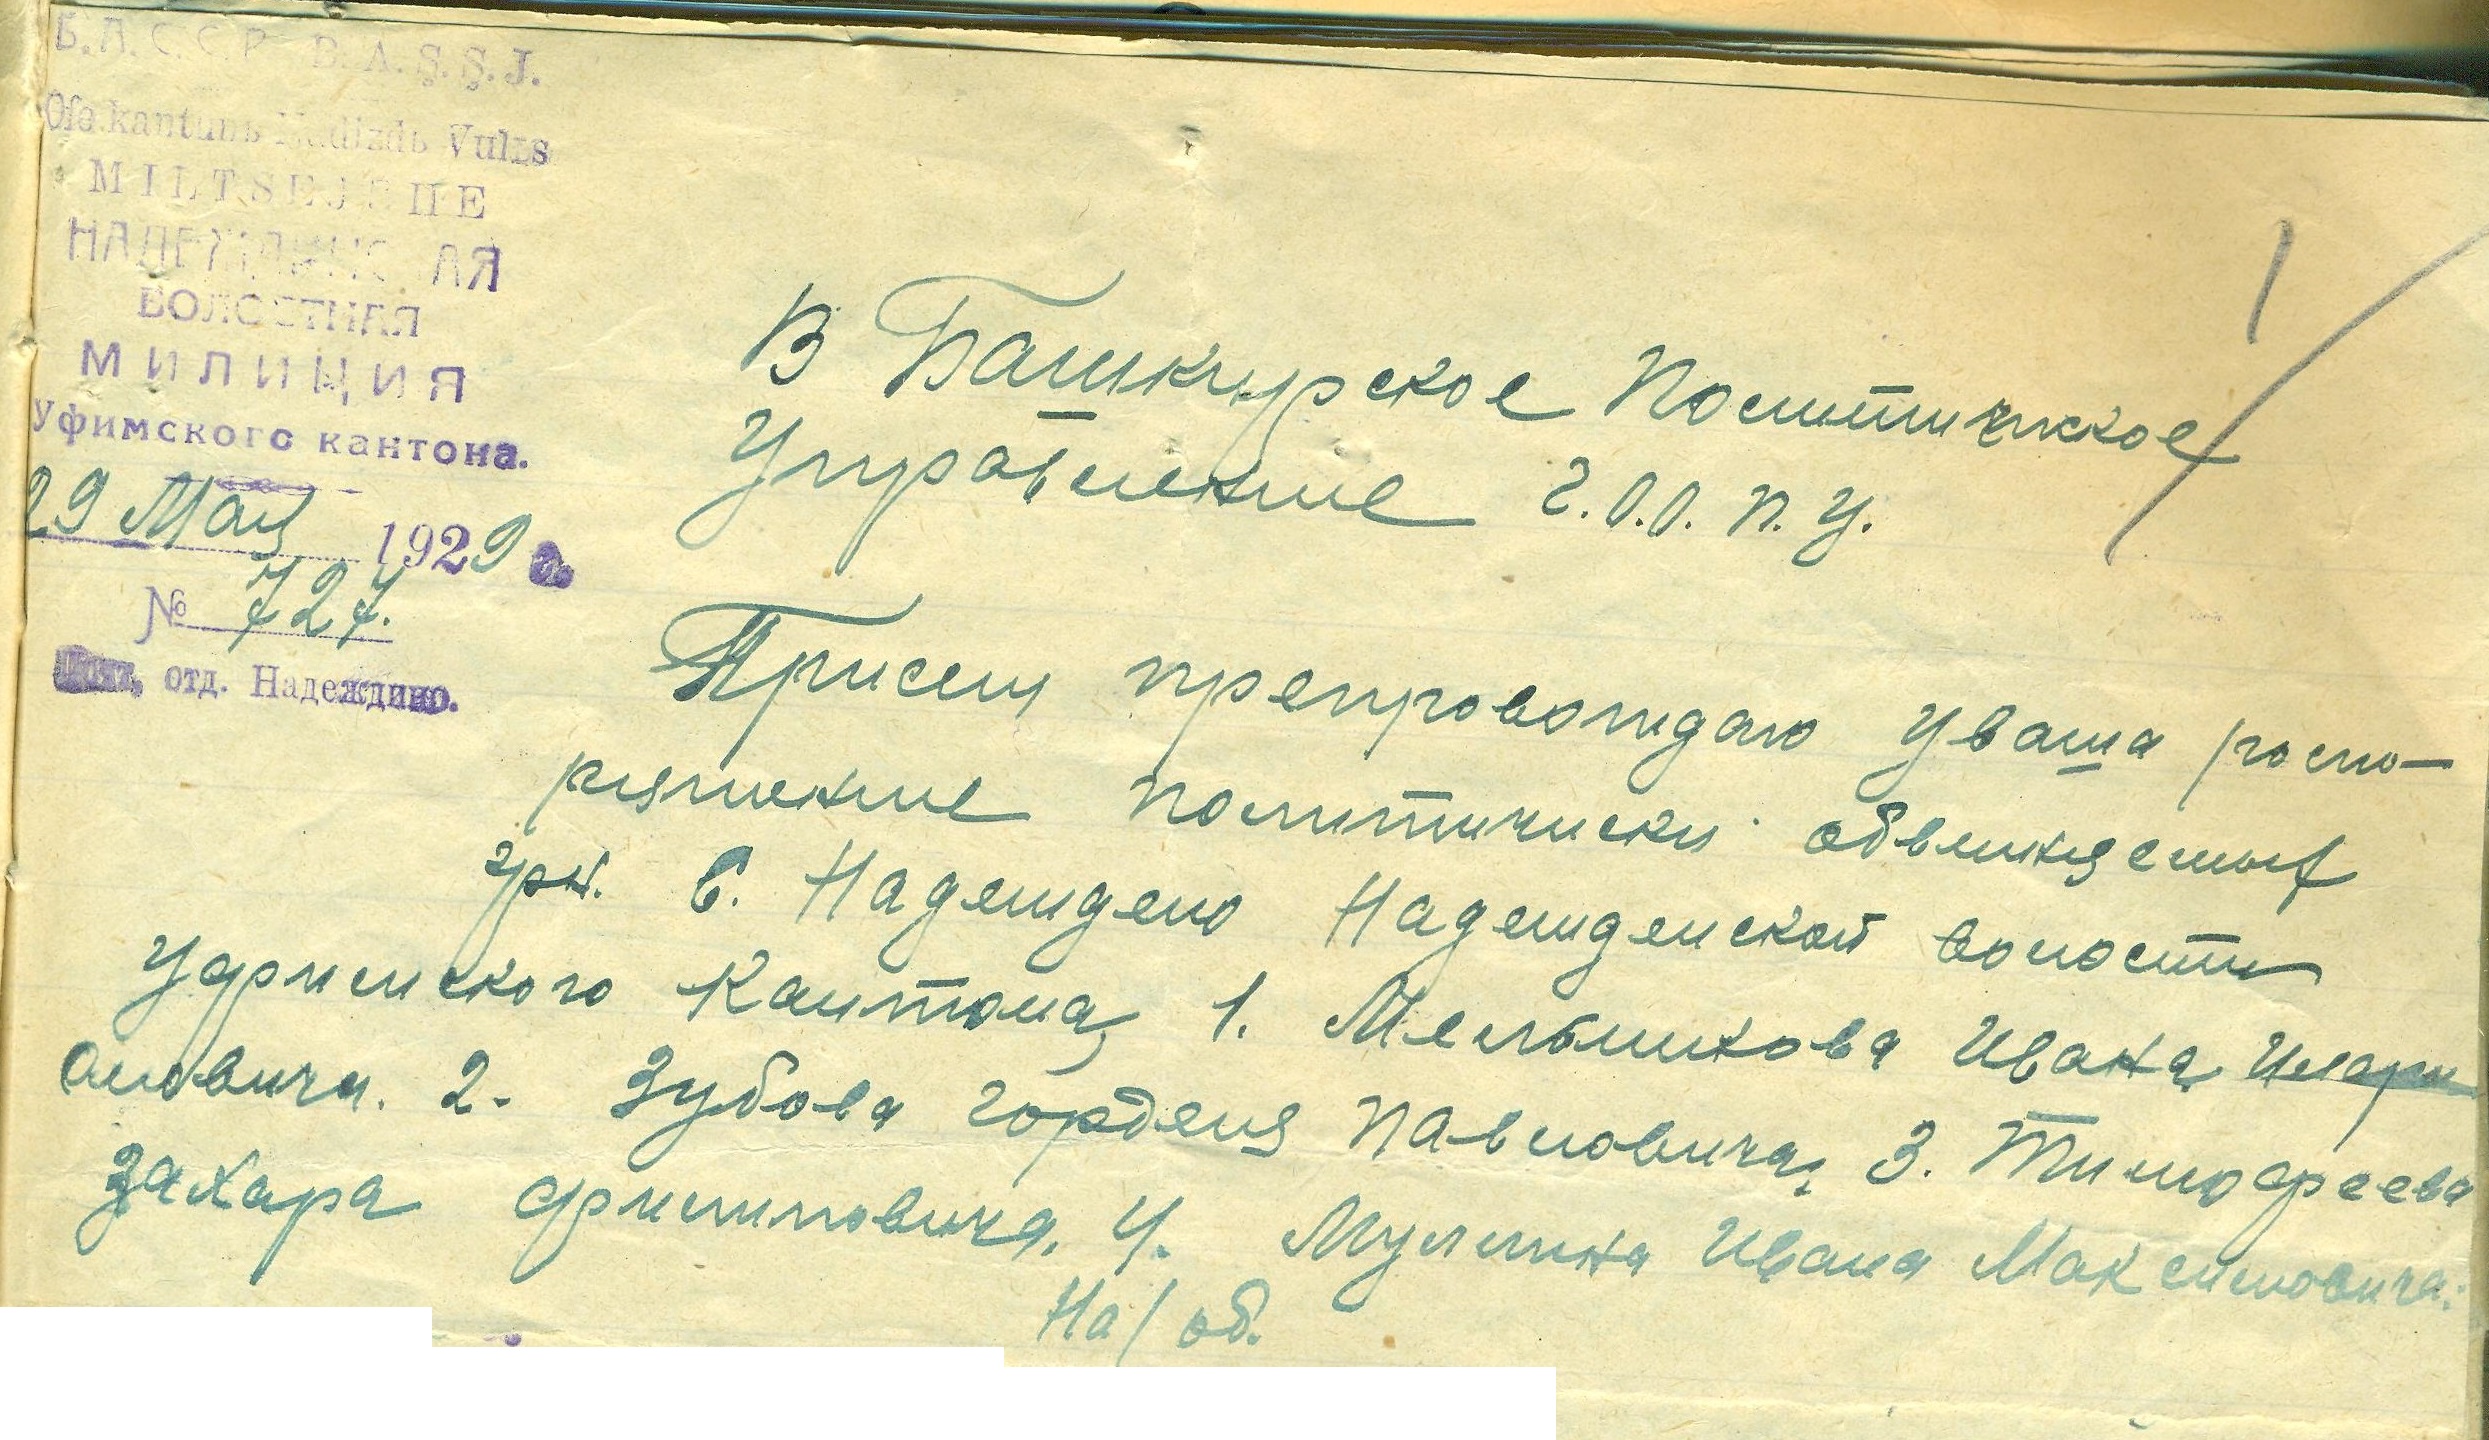 Б.А.С.С.Р. B.A.Ş.Ş.J.
Øfø kantunь Nadizdь Vulьs
MILTSEJƏHE
НАДЕЖДИНСКАЯ
ВОЛОСТНАЯ
МИЛИЦИЯ
Уфимского кантона.
29 Мая 1929 г.
№ 727.
Почт. отд. Надеждино.
1
В Башкирское Политическое
Управление Г.О.О.П.У.
Присем препровождаю Уваша распо-
ряжение политически обвиняемых
грн. С. Надеждено Надежденской волости
Уфимского Кантона, 1. Мельникова Ивана Илари
оновича. 2. Зубова Гордея Павловича, 3. Тимофеева
Захара Филипповича. 4. Муллина Ивана Максимовича.
На/об.